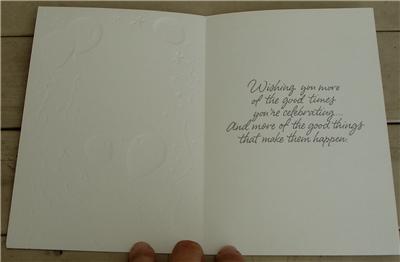 Wishing you more
of the good times
you're celebrating...
And more of the good things
that make them happen.